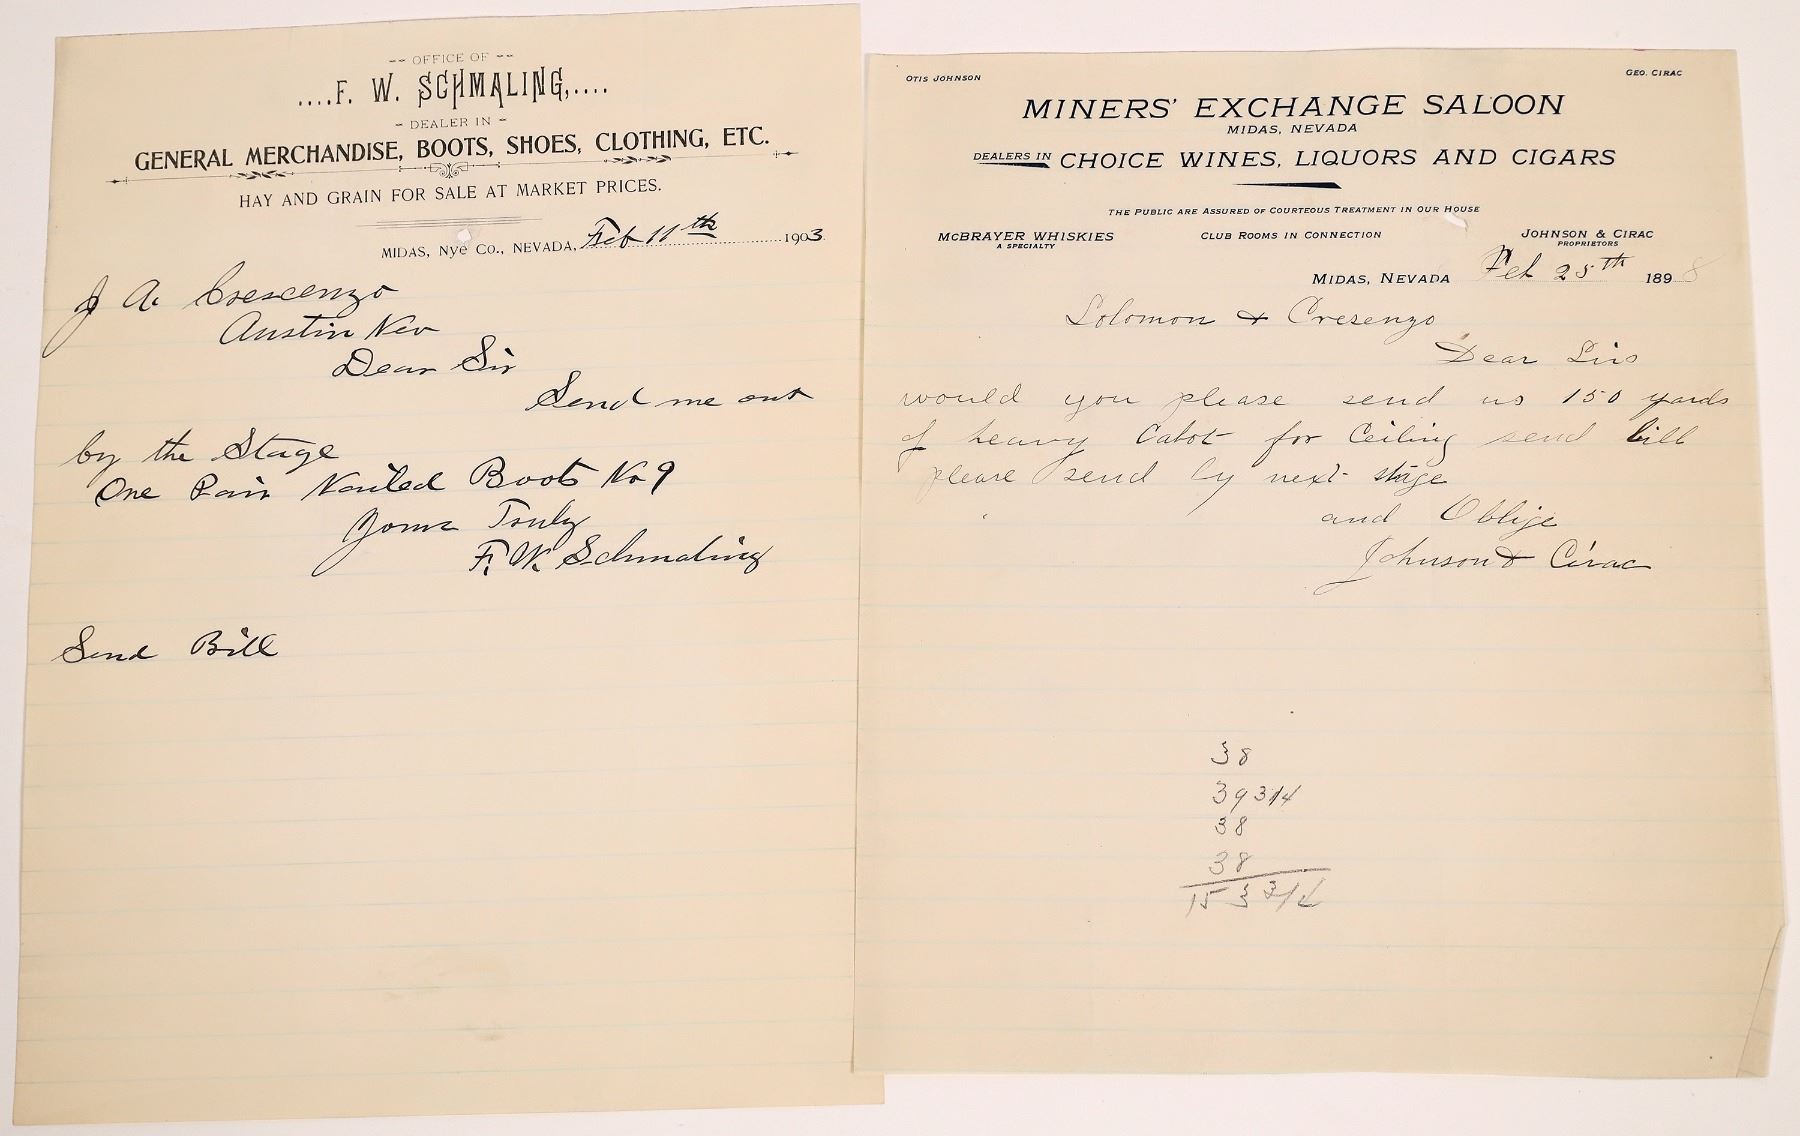 -- OFFICE OF --
....F. W. SCHMALING,....
- DEALER IN -
GENERAL MERCHANDISE, BOOTS, SHOES, CLOTHING, ETC.
HAY AND GRAIN FOR SALE AT MARKET PRICES.
MIDAS, Nye Co., NEVADA, Feb 11th 1903.
J A. Crescenzo
Austin Nev
Dear Sir
Send me out
by the Stage
One Pair Nailed Boots No 9
Yours Truly
F. W. Schmaling
Send Bill
OTIS JOHNSON
GEO. CIRAC
MINERS' EXCHANGE SALOON
MIDAS, NEVADA
DEALERS IN CHOICE WINES, LIQUORS AND CIGARS
THE PUBLIC ARE ASSURED OF COURTEOUS TREATMENT IN OUR HOUSE
MCBRAYER WHISKIES
A SPECIALTY
CLUB ROOMS IN CONNECTION
JOHNSON & CIRAC
PROPRIETORS
MIDAS, NEVADA Feb 25th 1898
Solomon & Cresenzo
Dear Sirs
would you please send us 150 yards
of heavy Cabot for Ceiling send bill
please send by next stage
and Oblige
Johnson & Cirac
38
39 3/4
38
38
153 3/4